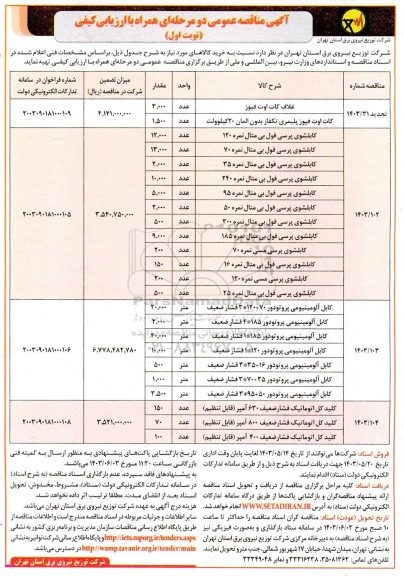 آگهی مناقصه عمومی دو مرحله‌ای همراه با ارزیابی کیفی
(نوبت اول)
شرکت توزیع نیروی برق استان تهران
شرکت توزیع نیروی برق استان تهران در نظر دارد نسبت به خرید کالاهای مورد نیاز به شرح جدول ذیل، براساس مشخصات فنی اعلام شده در
اسناد مناقصه و استانداردهای وزارت نیرو، بین المللی و ملی از طریق برگزاری مناقصه عمومی دو مرحله‌ای همراه با ارزیابی کیفی تهیه نماید.
مناقصه شماره | شرح کالا | واحد | مقدار | میزان تضمین شرکت در مناقصه (ریال) | شماره فراخوان در سامانه تدارکات الکترونیکی دولت
تجدید ۱۴۰۳/۳۱ | غلاف کات اوت فیوز | عدد | ۳,۰۰۰ | ۴,۱۴۱,۰۰۰,۰۰۰ | ۲۰۰۳۰۹۰۱۸۱۰۰۰۱۰۹
کات اوت فیوز پلیمری تکفاز بدون المان ۲۰کیلوولت | عدد | ۱,۵۰۰
۱۴۰۳/۱۰۲ | کابلشوی پرسی فول بی متال نمره ۱۲۰ | عدد | ۱۲,۰۰۰ | ۳,۵۴۰,۷۵۰,۰۰۰ | ۲۰۰۳۰۹۰۱۸۱۰۰۰۱۰۵
کابلشوی پرسی فول بی متال نمره ۷۰ | عدد | ۱۳,۰۰۰
کابلشوی پرسی فول بی متال نمره ۳۵ | عدد | ۲,۰۰۰
کابلشوی پرسی فول بی متال نمره ۲۴۰ | عدد | ۱۰,۰۰۰
کابلشوی پرسی فول بی متال نمره ۹۵ | عدد | ۵,۰۰۰
کابلشوی پرسی فول بی متال نمره ۵۰ | عدد
کابلشوی پرسی فول بی متال نمره ۳۰۰ | عدد | ۵۰۰
کابلشوی پرسی فول بی متال نمره ۱۸۵ | عدد | ۹,۰۰۰
کابلشوی پرسی مسی نمره ۷۰ | عدد | ۲۰۰
کابلشوی پرسی فول بی متال نمره ۱۶ | عدد | ۱۵۰
کابلشوی پرسی مسی نمره ۱۲۰ | عدد | ۲۰۰
کابلشوی پرسی فول بی متال نمره ۲۵ | عدد | ۵۰۰
۱۴۰۳/۱۰۳ | کابل آلومینیومی پروتودور ۷۰+۱۲۰*۳ فشار ضعیف | متر | ۲۰,۰۰۰ | ۶,۷۷۸,۴۸۲,۷۸۰ | ۲۰۰۳۰۹۰۱۸۱۰۰۰۱۰۶
کابل آلومینیومی پروتودور ۱۸۵*۳ فشار ضعیف | متر
کابل آلومینیومی پروتودور ۱۸۵*۱ فشار ضعیف | متر
کابل آلومینیومی پروتودور ۱۲۰*۱ فشار ضعیف | متر | ۱۰,۰۰۰
کابل آلومینیومی پروتودور ۱۶+۳۵*۳ فشار ضعیف | متر | ۵۰۰
کابل آلومینیومی پروتودور ۳۵+۷۰*۳ فشار ضعیف | متر | ۱,۰۰۰
کابل آلومینیومی پروتودور ۵۰+۹۵*۳ فشار ضعیف | متر | ۳,۵۰۰
۱۴۰۳/۱۰۴ | کلید کل اتوماتیک فشار ضعیف ۶۳۰ آمپر (قابل تنظیم) | عدد | ۱۵۰ | ۳,۵۲۱,۰۰۰,۰۰۰ | ۲۰۰۳۰۹۰۱۸۱۰۰۰۱۰۸
کلید کل اتوماتیک فشار ضعیف ۸۰۰ آمپر (قابل تنظیم) | عدد | ۷۰
کلید کل اتوماتیک فشار ضعیف ۴۰۰ آمپر (قابل تنظیم) | عدد | ۱۰۰
فروش اسناد: شرکت‌ها می توانند از تاریخ ۱۴۰۳/۰۵/۱۴ لغایت پایان وقت اداری
تاریخ ۱۴۰۳/۰۵/۲۰ جهت دریافت اسناد به شرح ذیل و از طریق سامانه تدارکات
الکترونیکی دولت (ستاد) اقدام نمایند.
دریافت اسناد: کلیه مراحل برگزاری مناقصه از دریافت و تحویل اسناد مناقصه
ارائه پیشنهاد مناقصه‌گران و بازگشایی پاکت‌ها از طریق درگاه سامانه تدارکات
الکترونیکی دولت (ستاد) به آدرس WWW.SETADIRAN.IR انجام خواهد شد.
تاریخ تحویل (عودت) اسناد: مناقصه گران اسناد مناقصه را حداکثر تا ساعت
۱۰ صبح مورخ ۱۴۰۳/۰۶/۰۳ در سامانه ستاد بارگذاری و به‌صورت فیزیکی نیز
(به شرح اسناد مناقصه) به دبیرخانه مرکزی شرکت توزیع نیروی برق استان تهران
به نشانی: تهران، میدان شهدا، خیابان ۱۷ شهریور شمالی، جنب مترو تحویل نمایند.
تاریخ بازگشایی پاکت‌های پیشنهادی به منظور ارسال به کمیته فنی
بازرگانی ساعت ۱۱:۳۰ مورخ ۱۴۰۳/۰۶/۰۳ می‌باشد.
به پیشنهادهای فاقد سپرده، عدم بارگذاری اسناد مناقصه (به شرح اسناد)
در سامانه تدارکات الکترونیکی دولت (ستاد)، مشروط، مخدوش، تحویل
اسناد بعد از انقضای مدت، مطلقا ترتیب اثر داده نخواهد شد.
هزینه درج آگهی به عهده شرکت توزیع نیروی برق استان تهران می‌باشد.
سایر اطلاعات و جزئیات مربوطه در اسناد مناقصه مندرج است و اطلاعات مناقصه از
طریق پایگاه اطلاع رسانی مناقصات سازمان مدیریت و برنامه‌ریزی کشور به نشانی
http://iets.mporg.ir/tenders.aspx و پایگاه اطلاع رسانی شرکت توانیر به نشانی
http://wamp.tavanir.org.ir/tender/main در دسترس می‌باشد.
شرکت توزیع نیروی برق استان تهران